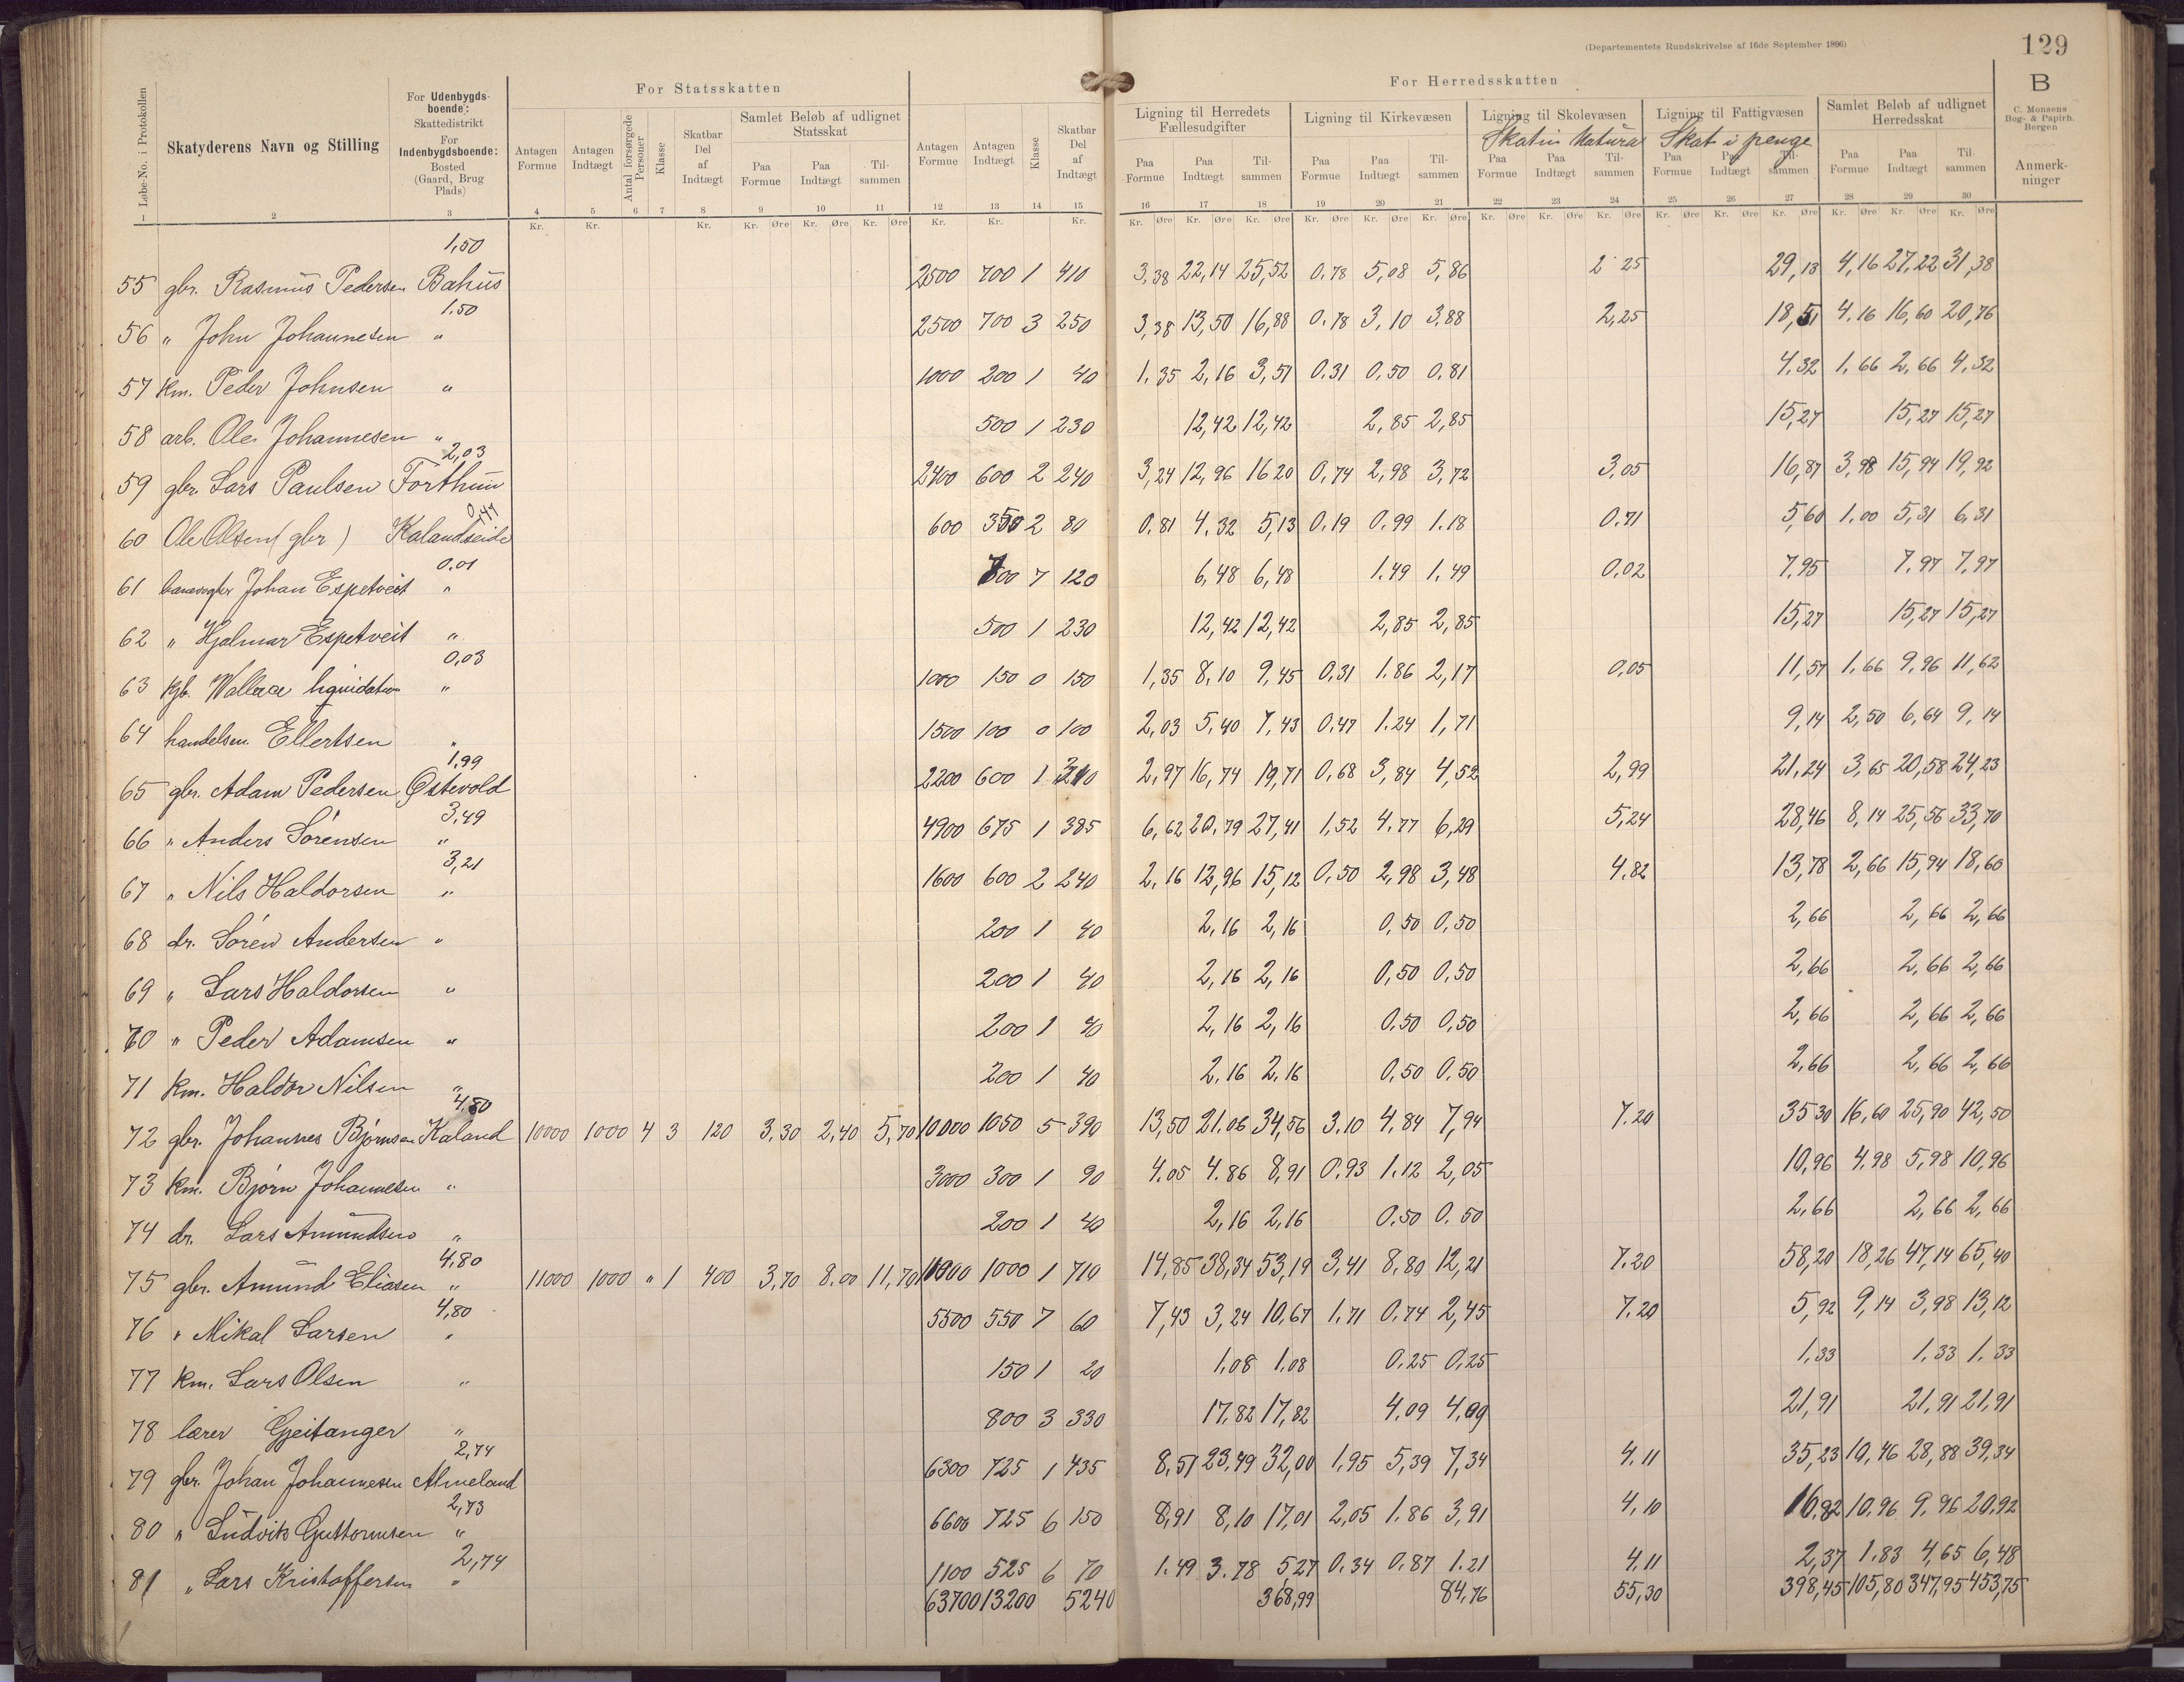 (Departementets Rundskrivelse af 16de September 1896)
129
For Statsskatten
For Herredsskatten
B
C. Monsens Bog- & Papirh. Bergen
Løbe-No. i Protokollen
Skatyderens Navn og Stilling
For Udenbygdsboende: Skattedistrikt For Indenbygdsboende: Bosted (Gaard, Brug Plads)
Antagen Formue Antagen Indtægt Antal forsørgede Personer Klasse Skatbar Del af Indtægt
Samlet Beløb af udlignet Statsskat
Paa Formue Paa Indtægt Tilsammen
Antagen Formue Antagen Indtægt Klasse Skatbar Del af Indtægt
Ligning til Herredets Fællesudgifter
Paa Formue Paa Indtægt Tilsammen
Ligning til Kirkevæsen
Paa Formue Paa Indtægt Tilsammen
Ligning til Skolevæsen
Skat in Natura
Paa Formue Paa Indtægt Tilsammen
Ligning til Fattigvæsen
Skat i penge
Paa Formue Paa Indtægt Tilsammen
Samlet Beløb af udlignet Herredsskat
Paa Formue Paa Indtægt Tilsammen
Anmerkninger
1 2 3 4 5 6 7 8 9 10 11 12 13 14 15 16 17 18 19 20 21 22 23 24 25 26 27 28 29 30
Kr. Kr. Kr. Kr. Øre Kr. Øre Kr. Øre Kr. Kr. Kr. Kr. Øre Kr. Øre Kr. Øre Kr. Øre Kr. Øre Kr. Øre Kr. Øre Kr. Øre Kr. Øre Kr. Øre Kr. Øre Kr. Øre Kr. Øre Kr. Øre Kr. Øre
1,50
55 gbr. Rasmus Pedersen Bahus 2500 700 1 410 3,38 22,14 25,52 0.78 5,08 5,86 2 25 29,13 4,16 27,22 31,38
1.50
56 " John Johannesen " 2500 700 3 250 3,38 13,50 16,88 0.78 3,10 3,88 2,25 18,51 4.16 16,60 20,76
57 km. Peder Johnsen " 1000 200 1 40 1,35 2,16 3,51 0.31 0,50 0,81 4,32 1,66 2,66 4,32
58 arb. Ole Johannesen " 500 1 230 12,42 12,42 2,85 2,85 15,27 15,27 15,27
2,03
59 gbr. Lars Paulsen Forthun 2400 600 2 240 3,24 12,96 16 20 0,74 2,98 3,72 3,05 16,87 3,98 15,94 19,92
0,47
60 Ole Olsen (gbr) Kalandseide 600 350 2 80 0,81 4.32 5,13 0.19 0,99 1.18 0.71 5,60 1.00 5,31 6,31
0.01
61 banevogter Johan Espetveit " 700 7 120 6,48 6,48 1.49 1,49 0,02 7,95 7,97 7,97
62 " Hjalmar Espetveit " 500 1 230 12,42 12,42 2,85 2,85 15,27 15,27 15,27
0,03
63 kjb. Wallace liquidation " 1000 150 0 150 1,35 8,10 9,45 0,31 1.86 2,17 0,05 11,57 1,66 9,96 11,62
64 handelsm. Ellertsen " 1500 100 0 100 2,03 5,40 7,43 0,47 1.24 1,71 9,14 2,50 6,64 9,14
1,99
65 gbr. Adam Pedersen Østevold 2200 600 1 310 2,97 16,74 19,71 0,68 3,84 4,52 2,99 21,24 3,65 20,58 24,23
3,49
66 " Anders Sørensen " 4900 675 1 385 6,62 20,79 27,41 1,52 4.77 6,29 5,24 28,46 8,14 25,56 33,70
3,21
67 " Nils Haldorsen " 1600 600 2 240 2,16 12,96 15,12 0,50 2,98 3,48 4.82 13,78 2,66 15,94 18,60
68 dr. Søren Andersen " 200 1 40 2,16 2,16 0,50 0,50 2,66 2,66 2,66
69 " Lars Haldorsen " 200 1 40 2,16 2,16 0,50 0,50 2,66 2,66 2,66
70 " Peder Adamsen " 200 1 40 2,16 2,16 0.50 0,50 2,66 2,66 2,66
71 km. Haldor Nilsen " 200 1 40 2,16 2,16 0,50 0,50 2,66 2,66 2,66
4,80
72 gbr. Johannes Bjørnsen Kaland 10000 1000 4 3 120 3,30 2,40 5,70 10000 1050 5 390 13,50 21.06 34,56 3.10 4,84 7,94 7.20 35 30 16,60 25,90 42,50
73 km. Bjørn Johannesen " 3000 300 1 90 4.05 4.86 8,91 0,93 1.12 2,05 10,96 4,98 5,98 10,96
74 dr. Lars Amundsen " 200 1 40 2,16 2,16 0.50 0.50 2,66 2,66 2,66
4,80
75 gbr. Amund Eliasen " 11000 1000 " 1 400 3,70 8.00 11,70 11000 1000 1 710 14,85 38,34 53,19 3,41 8,80 12,21 7.20 58,20 18,26 47,14 65,40
4,80
76 " Mikal Larsen " 5500 550 7 60 7,43 3,24 10,67 1.71 0.74 2,45 7.20 5,92 9,14 3,98 13,12
77 km. Lars Olsen " 150 1 20 1,08 1,08 0.25 0,25 1,33 1.33 1.33
78 lærer Gjeitanger " 800 3 330 17,82 17,82 4.09 4,09 21,91 21,91 21,91
2,74
79 gbr. Johan Johannesen Almeland 6300 725 1 435 8,51 23,49 32,00 1,95 5,39 7,34 4.11 35,23 10,46 28,88 39,34
2,73
80 " Ludvik Guttormsen " 6600 725 6 150 8,91 8,10 17,01 2,05 1.86 3,91 4,10 16,82 10,96 9,96 20,92
2,74
81 " Lars Kristoffersen " 1100 525 6 70 1.49 3.78 5,27 0.34 0,87 1.21 4,11 2,37 1.83 4,65 6,48
63700 13200 5240 368,99 84,76 55,30 398,45 105,80 347,95 453,75